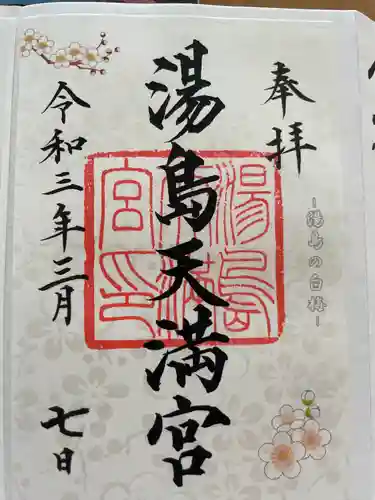 奉拝
-湯島の白梅-
湯島天満宮
湯島天満宮印
令和三年三月
七日